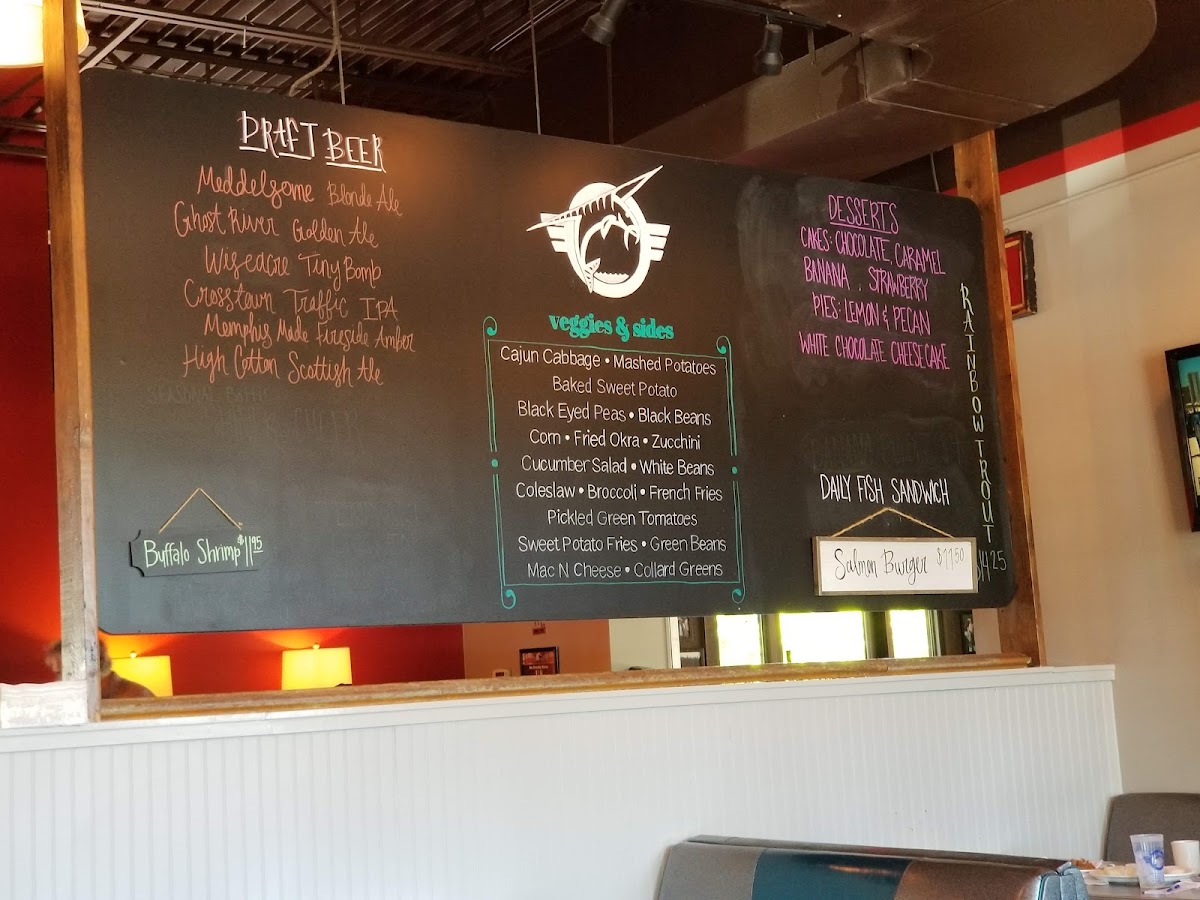 DRAFT BEER
Meddelsome Blonde Ale
Ghost River Golden Ale
Wiseacre Tiny Bomb
Crosstown Traffic IPA
Memphis Made Fireside Amber
High Cotton Scottish Ale
Buffalo Shrimp $11.95
veggies & sides
Cajun Cabbage • Mashed Potatoes
Baked Sweet Potato
Black Eyed Peas • Black Beans
Corn • Fried Okra • Zucchini
Cucumber Salad • White Beans
Coleslaw • Broccoli • French Fries
Pickled Green Tomatoes
Sweet Potato Fries • Green Beans
Mac N Cheese • Collard Greens
DESSERTS
CAKES: CHOCOLATE, CARAMEL
BANANA, STRAWBERRY
PIES: LEMON & PECAN
WHITE CHOCOLATE CHEESECAKE
DAILY FISH SANDWICH
Salmon Burger $11.50
RAINBOW TROUT
$14.25